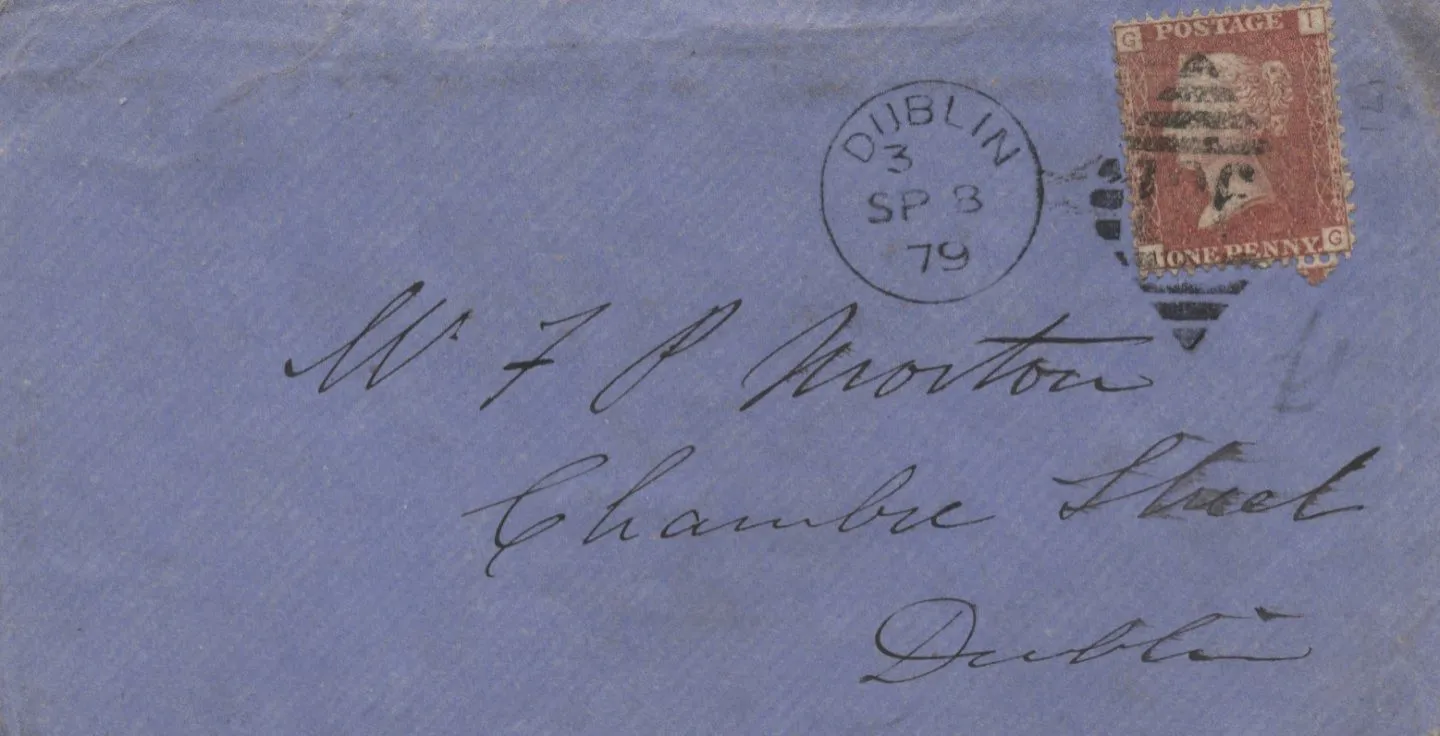 G POSTAGE I
DUBLIN
3
SP 8
79
I ONE PENNY. G
Mr F P Morton
Chambre Street
Dublin